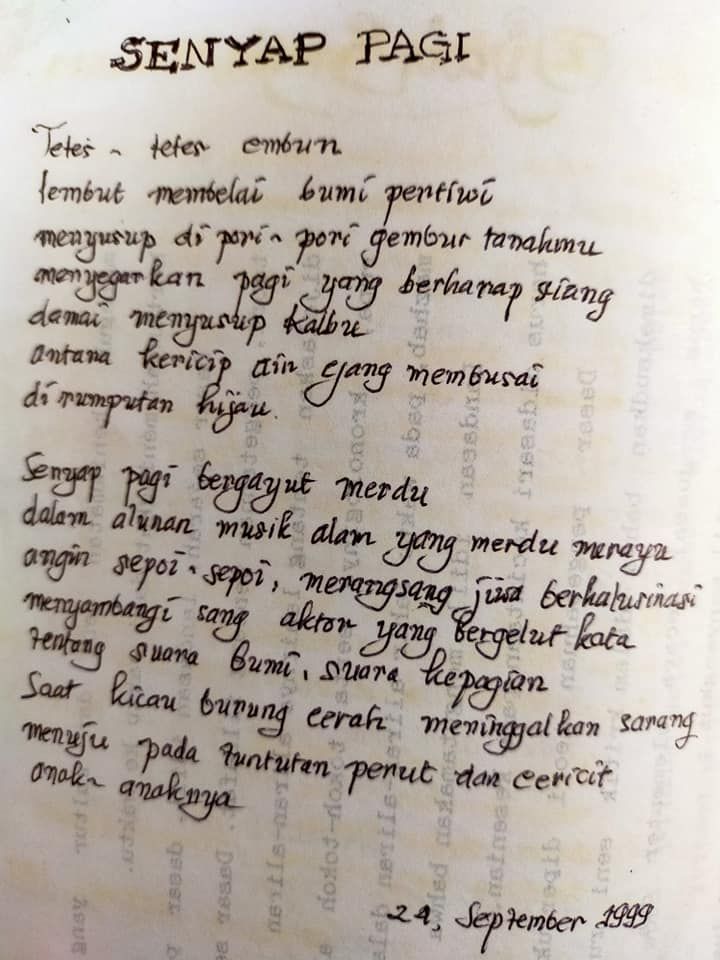 SENYAP PAGI
Tetes ~ tetes embun
lembut membelai bumi pertiwi
menyusup di pori ~ pori gembur tanahmu
menyegarkan pagi yang berharap siang
damai menyusup kalbu
antara kericip air yang membusai
di rumputan hijau.
Senyap pagi bergayut merdu
dalam alunan musik alam yang merdu merayu
angin sepoi ~ sepoi, merangsang jiwa berhalusinasi
menyambangi sang aktor yang bergelut kata
tentang suara bumi, suara kepagian
Saat kicau burung cerah meninggalkan sarang
menuju pada tuntutan perut dan cericit
anak ~ anaknya
24, September 1999